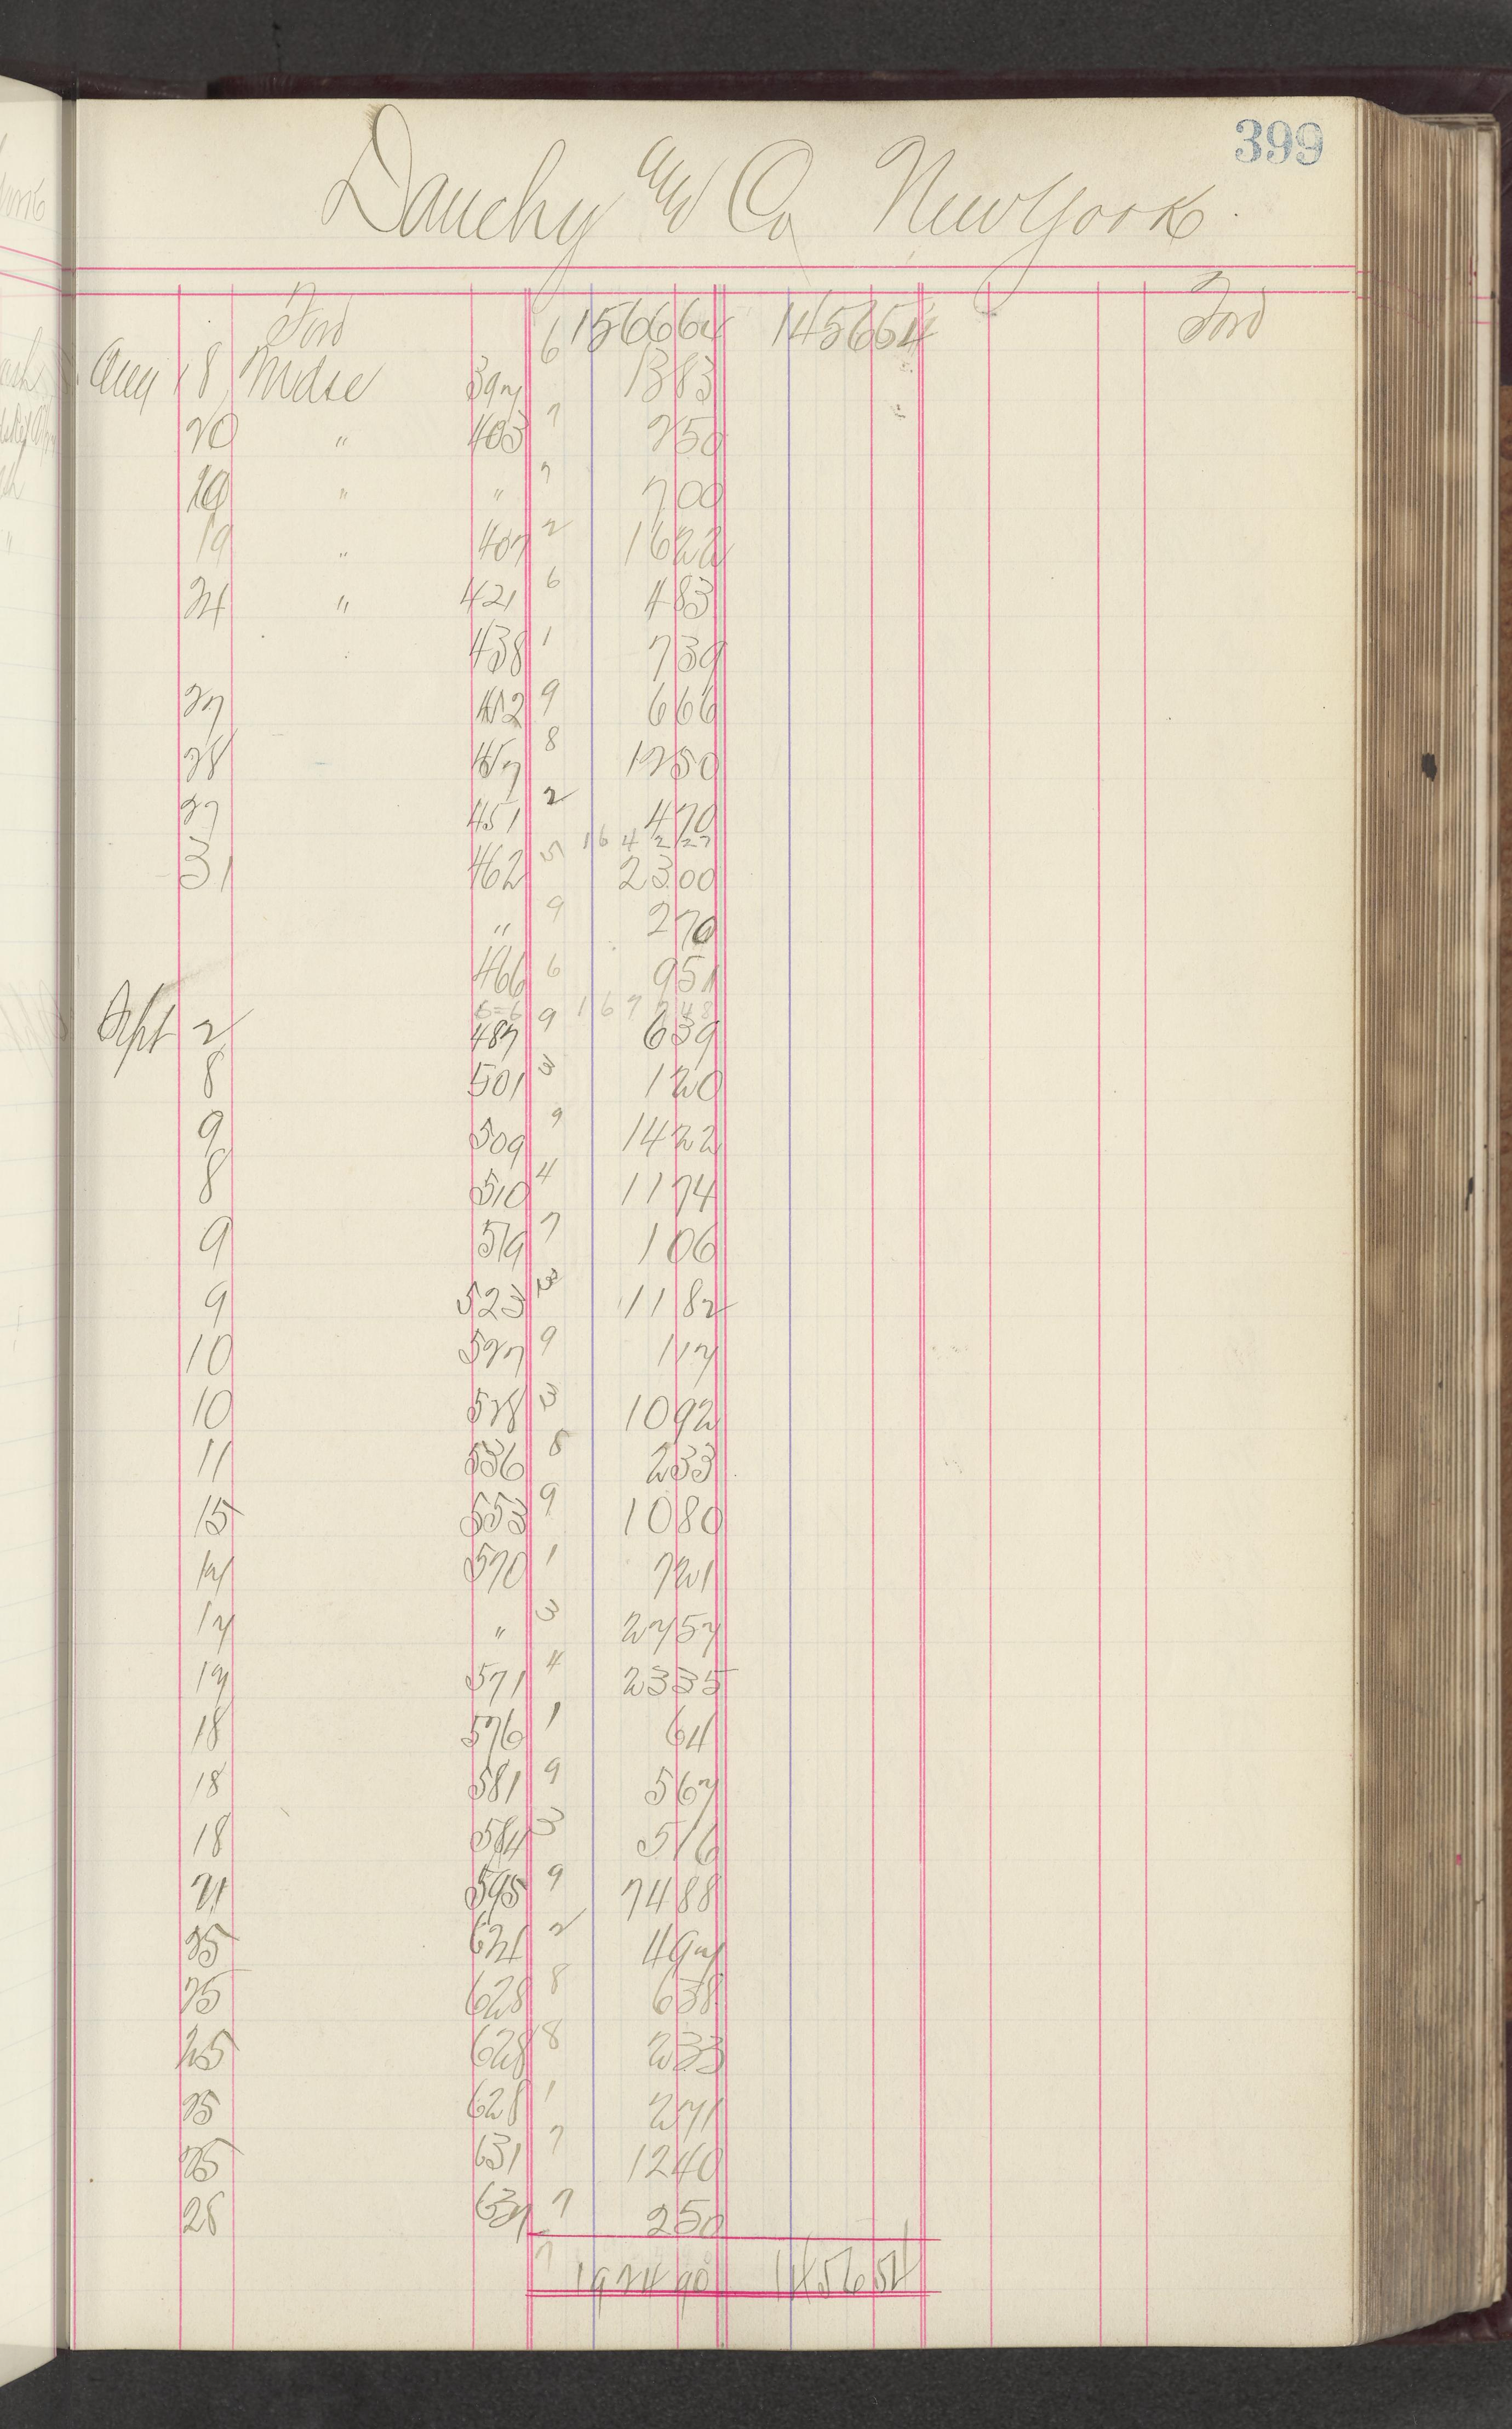 399
Dauchy and Co New York.
Ford 156664 145654 Ford
Aug 18 Mdse 397 6 1383
20 " 403 7 250
20 " " 7 700
19 " 407 2 1622
24 " 421 6 483
438 1 739
27 452 9 666
28 457 8 1250
27 451 2 470
164227
31 462 5 2300
" 9 270
466 6 951
6=6 167748
Sept 2 487 9 639
8 501 3 120
9 509 9 1422
8 510 4 1174
9 519 7 106
9 523 3 1182
10 527 9 117
10 528 3 1092
11 536 8 233
15 553 9 1080
17 570 1 721
17 " 3 2757
17 571 4 2335
18 576 1 64
18 581 9 567
18 584 3 516
21 595 9 7488
25 624 2 497
25 628 8 638
25 628 8 233
25 628 1 271
25 631 7 1240
28 637 7 250
7 192490 145654